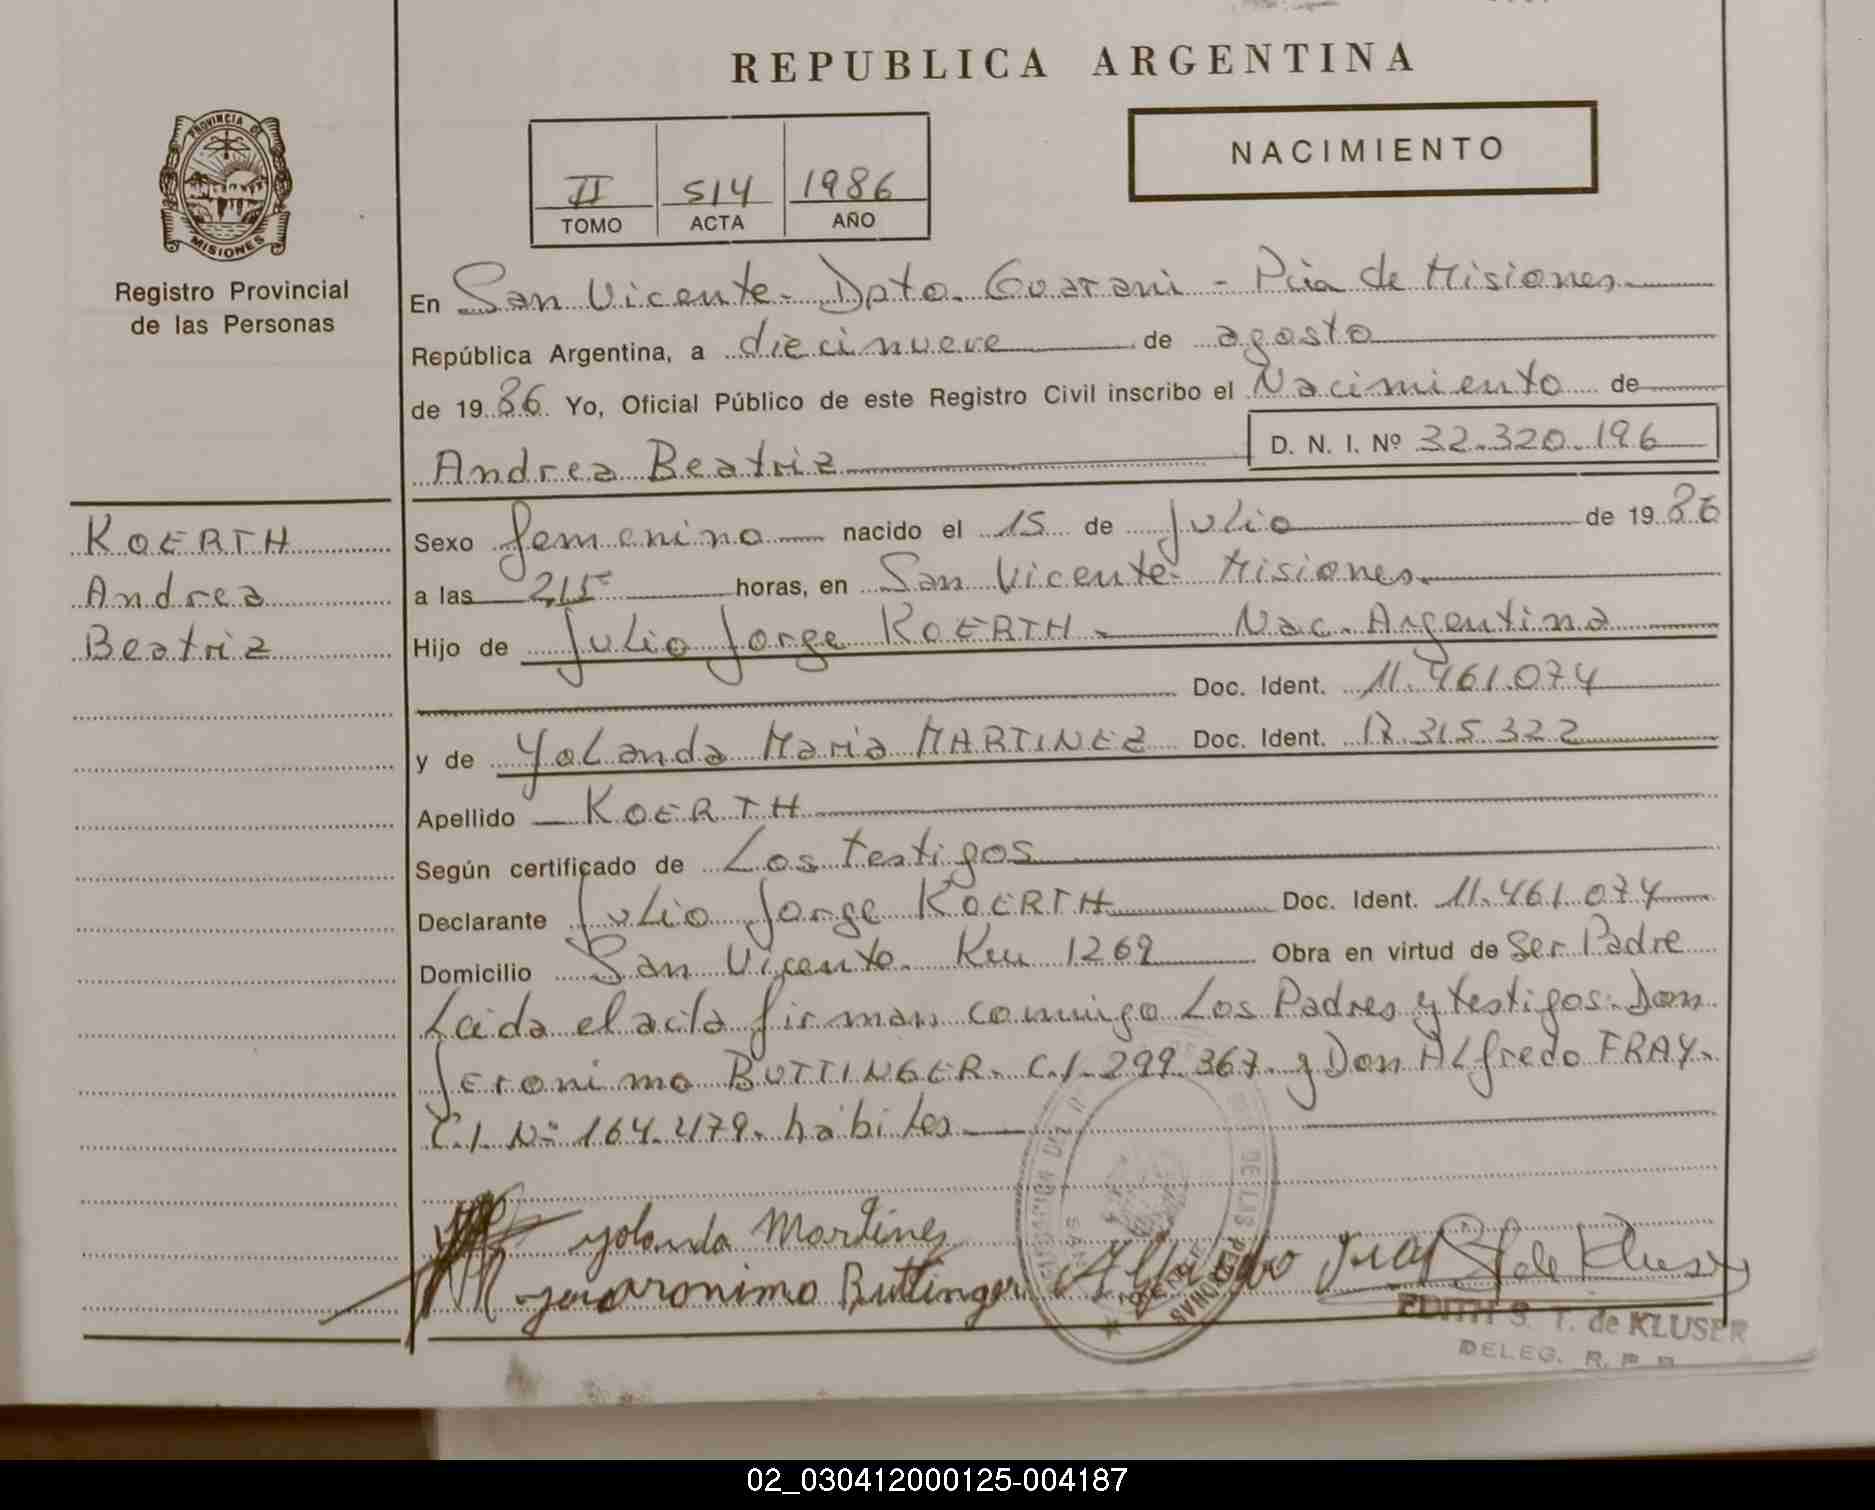 REPUBLICA ARGENTINA
PROVINCIA DE
MISIONES
Registro Provincial
de las Personas
NACIMIENTO
II 514 1986
TOMO ACTA AÑO
En San Vicente. Dpto. Guarani - Pcia de Misiones
República Argentina, a diecinueve de agosto
de 1986 Yo, Oficial Público de este Registro Civil inscribo el Nacimiento de
D. N. I. Nº 32.320.196
Andrea Beatriz
KOERTH
Andrea
Beatriz
Sexo femenino nacido el 15 de Julio de 1986
a las horas, en San Vicente- Misiones.
Hijo de Julio Jorge KOERTH. Nac. Argentina
Doc. Ident. 11.461.074
y de Yolanda Maria MARTINEZ Doc. Ident. 315.322
Apellido KOERTH
Según certificado de Los testigos
Declarante Julio Jorge KOERTH Doc. Ident. 11.461.074
Domicilio San Vicente. Km 1269 Obra en virtud de Ser Padre
Leida el acta firman conmigo Los Padres y testigos: Don
Jeronimo BUTTINGER. C.I. 299.367. y Don Alfredo FRAY.
C.I. Nº 164.479. habiles
Yolanda Martines
Buttinger
EDITH S. T. de KLUSER
DELEG. R. P.
02_030412000125-004187